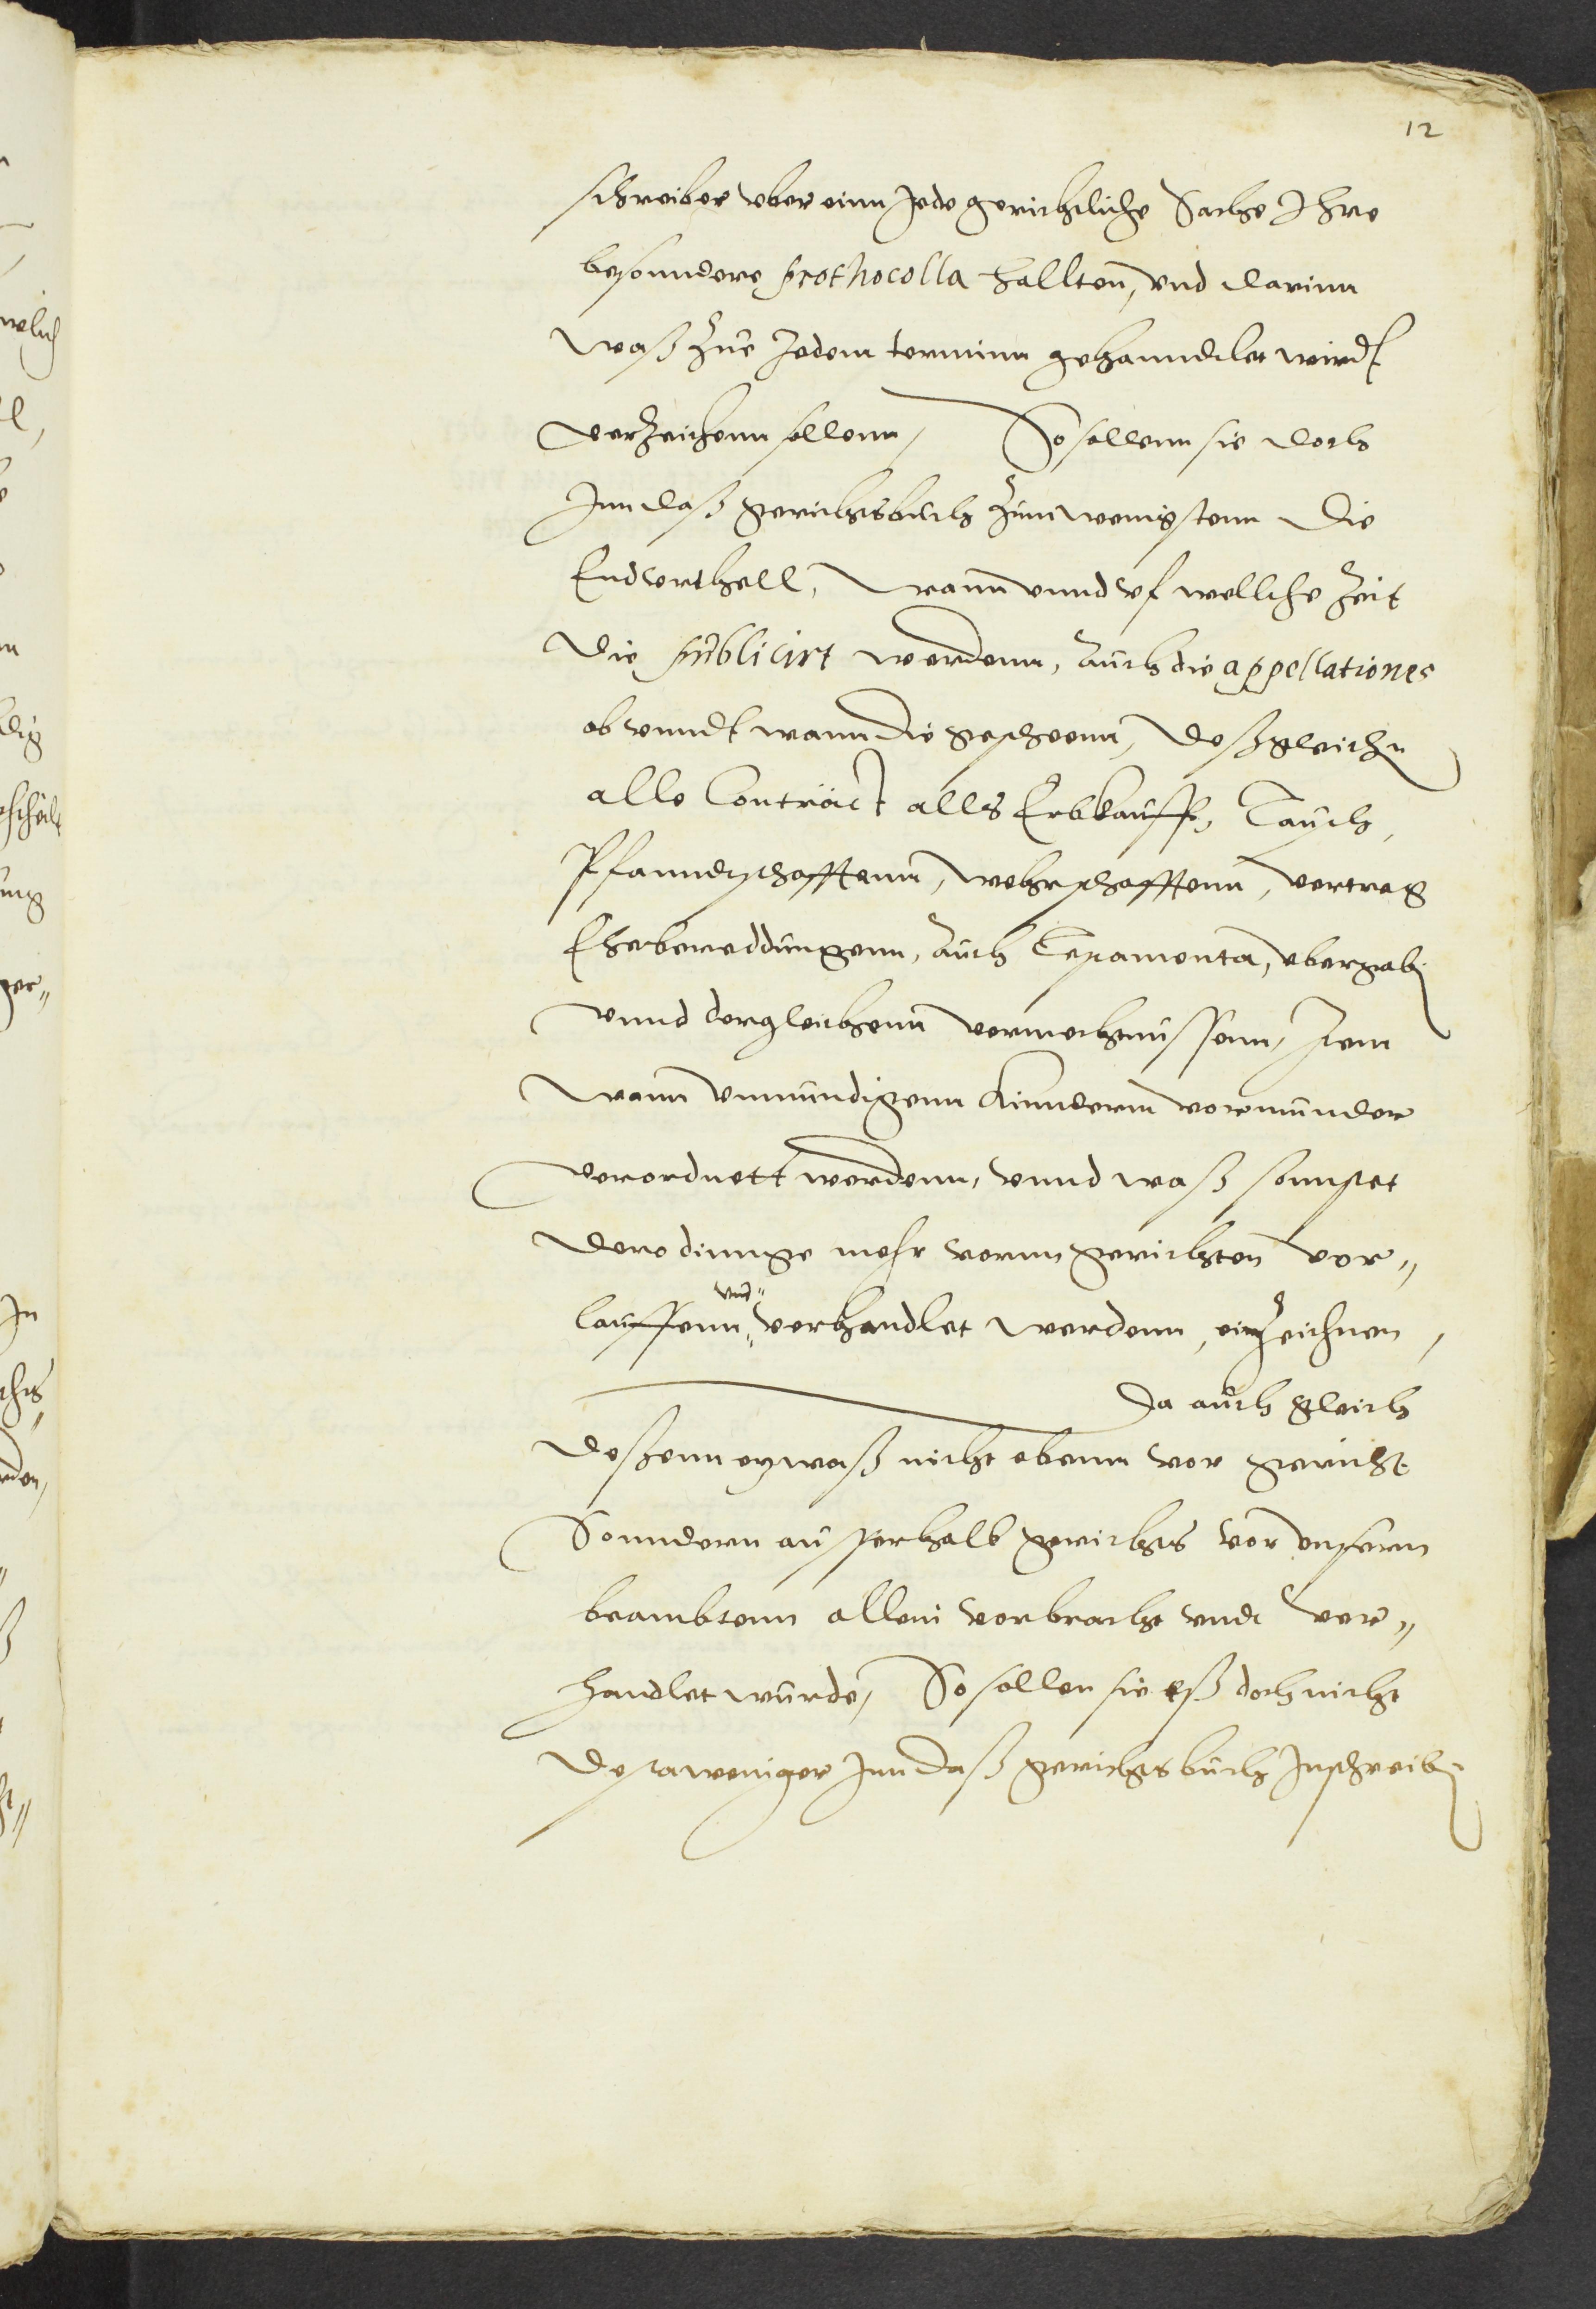 12
schreiber vber einn Jede gerichtliche Sache Ihre
besonndere prothocolla hallten, vnd darinn
waß Zue Jedem terminn gehanndelet wirdt
verZeichenn sollenn, So sollenn sie doch
Inn daß gerichtsbuch Zum wenigstenn die
Endvrthell, wann vnnd vf wellche Zeit
die publicirt werdenn, auch die appellationes
ob vnndt wann die gescheenn, deßgleichn
alle Contract alls Erbkäuff, Tausch,
Pfanndtschafftenn, wehrschafftenn, vertrag
Eheberäddungenn, auch Testamenta, vbergab
vnnd dergleichenn vermechtnussenn, Item
wann vnmundigenn Kinnderm vormunder
verordnett werdenn, vnnd waß sonnstet
dero dinnge mehr vorm gerichten vor„
lauffenn vnd„ verhandlet werdenn, einZeichnen,
Da auch gleich
deßenn etwaß nicht ebenn vor gericht
Sonndern ausserhalb gerichts vor vnsern
beambtenn allein vorbracht vndt ver„
handlet wurde, So sollen sie eß doch nicht
desto weniger Inn daß gerichtsbuch Inschreib